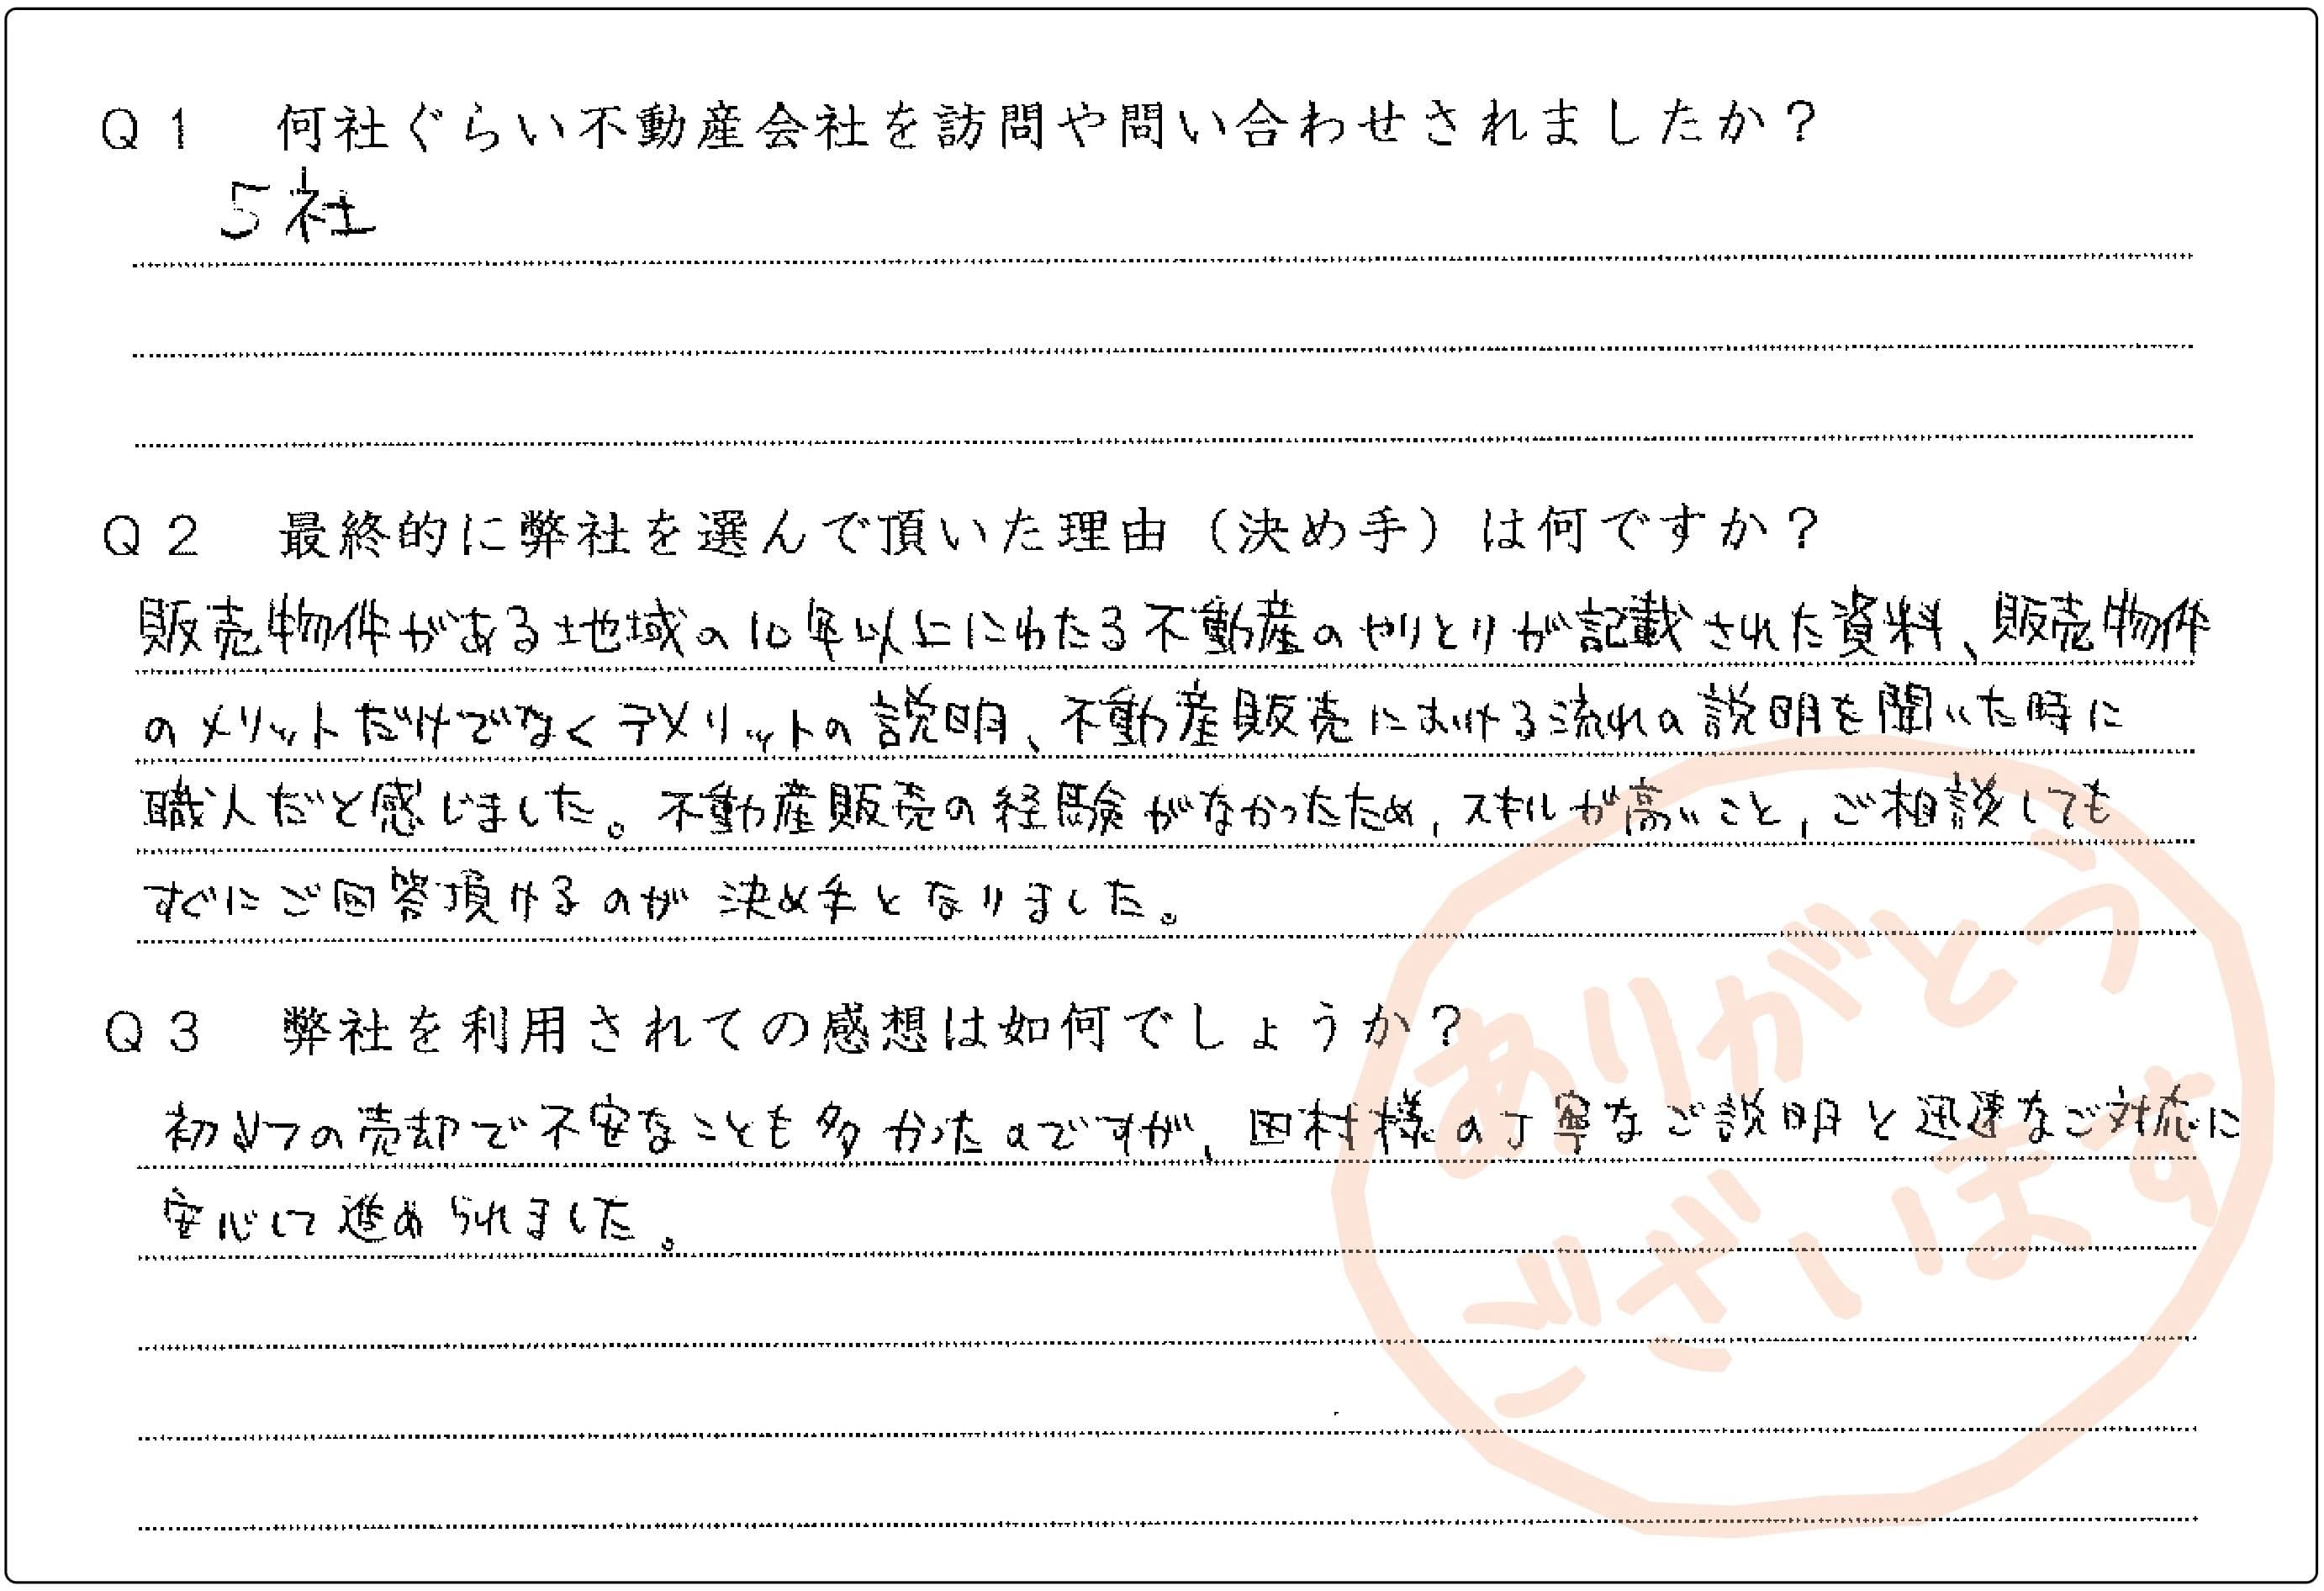 Q1 何社ぐらい不動産会社を訪問や問い合わせされましたか？
5社
Q2 最終的に弊社を選んで頂いた理由（決め手）は何ですか？
販売物件がある地域の10年以上にわたる不動産のやりとりが記載された資料、販売物件
のメリットだけでなくデメリットの説明、不動産販売における流れの説明を聞いた時に
職人だと感じました。不動産販売の経験がなかったため，スキルが高いこと，ご相談しても
すぐにご回答頂けるのが決め手となりました。
Q3 弊社を利用されての感想は如何でしょうか？
初めての売却で不安なことも多かったのですが，田村様の丁寧なご説明と迅速なご対応に
安心して進められました。
ありがとう
ございます